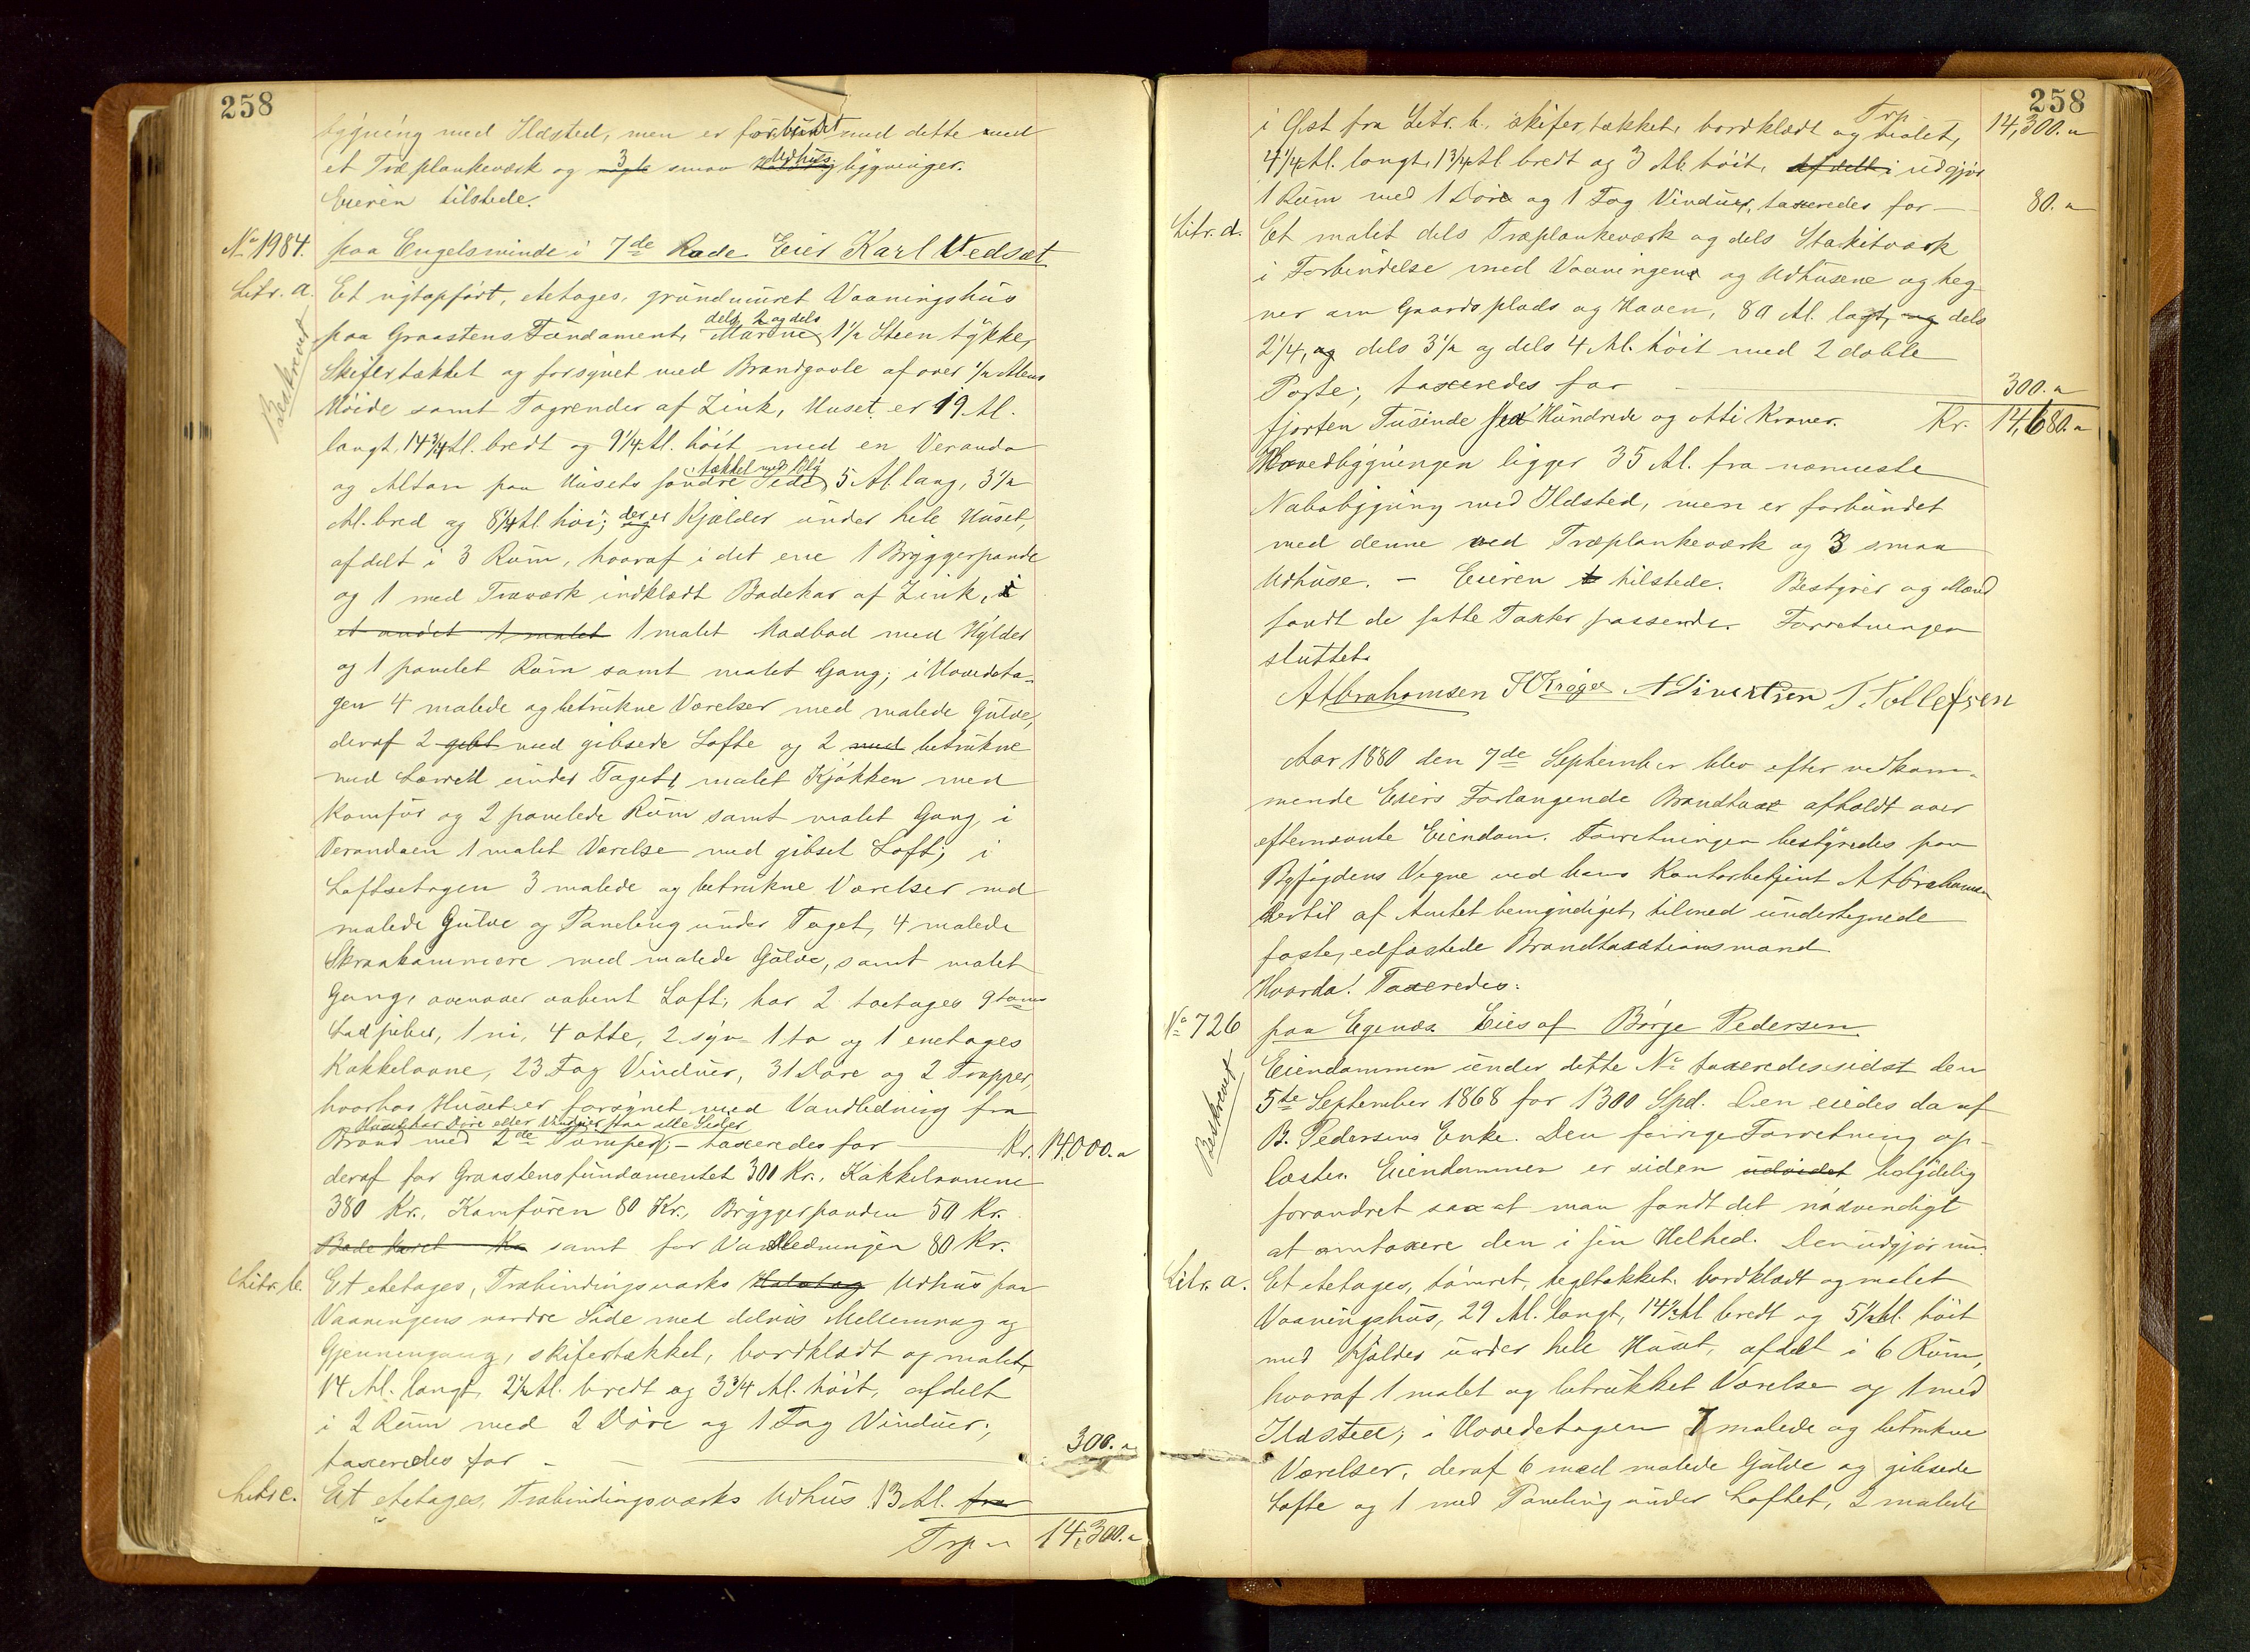 258
bygning med Ildsted, men er forbundet med dette med
et Træplankeværk og 3 smaa Udhusbygninger.
Eieren tilstede.
No 1984. paa Engelsminde i 7de Rode Eier Karl Vedsæt
Litr. a. Et nytopført, etetages, grundmuret Vaaningshus
Beskrevet
paa Graastens Fundament, Murene dels 2 og dels 1 1/2 Steen tykke,
Skifertækket og forsynet med Brandgavle af over 1/2 Alens
Høide samt Tagrender af Zink, Huset er 19 Al.
langt, 14 3/4 Al. bredt og 9 1/4 Al. høit med en Veranda
og Altan paa Husets søndre Side, tækket med Bly 5 Al. lang, 3 1/2
Al. bred og 8 1/4 Al høi; der er Kjælder under hele Huset,
afdelt i 3 Rum, hvoraf i det ene 1 Bryggerpande
og 1 med Træværk indklædt Badekar af Zink, i
et andet 1 malet 1 malet Madbod med Hylder
og 1 panelet Rum samt malet Gang; i Hovedeta-
gen 4 malede og betrukne Værelser med malede Gulve,
deraf 2 gibt med gibsede Lofte og 2 med betrukne
med Lærred under Taget, malet Kjøkken med
Komfur og 2 panelede Rum samt malet Gang, i
Verandaen 1 malet Værelse med gibset Loft; i
Loftsetagen 3 malede og betrukne Værelser med
malede Gulve og Paneling under Taget, 4 malede
Skraakammere med malede Gulve, samt malet
Gang, ovenover aabent Loft; har 2 toetages 9 toms
Ladpiber, 1 ni, 4 otte, 2 syv- 1 to og 1 enetages
Kakkelovne, 23 Fag Vinduer, 31 Døre og 2 Trapper,
hvorhos Huset er forsynet med Vandledning fra
Huset har Døre eller Vinduer paa alle Sider
Brønd med 2de Pumper; - taxeredes for Kr. 14,000.-
deraf for Graastensfundamentet 300 Kr., Kakkelovnene
380 Kr., Komfuren 80 Kr., Bryggerpanden 50 Kr.
Badekaret Kr. samt for Vandledningen 80 Kr.
Litr. b. Et etetages, Træbindingsværks Udhus paa
Vaaningens nordre Side med delvis Mellemrag og
Gjennemgang, skifertækket, bordklædt og malet,
14 Al. langt, 2 1/2 Al. bredt og 3 3/4 Al. høit, afdelt
i 2 Rum med 2 Døre og 1 Fag Vinduer;
taxeredes for - 300.-
Litr c. Et etetages, Træbindingsværks Udhus 13 Al. fra
Trp - 14,300.-
258
Trp 14,300.-
i Øst fra Litr. b., skifertækket, bordklædt og malet,
4 1/4 Al. langt, 1 3/4 Al. bredt og 3 Al. høit, afdelt i udgjør
1 Rum med 1 Dør og 1 Fag Vinduer, taxeredes for - 80.-
Litr. d. Et malet dels Træplankeværk og dels Stakitværk
i Forbindelse med Vaaningen og Udhusene og heg-
ner om Gaardsplads og Haven, 80 Al. lagt, og dels
2 1/4, og dels 3 1/2 og dels 4 Al. høit med 2 doble
Porte; taxeredes for 300.-
fjorten Tusinde sex Hundrede og otti Kroner. Kr. 14,680.-
Hovedbygningen ligger 35 Al. fra nærmeste
Nabobygning med Ildsted, men er forbundet
med denne ved Træplankeværk og 3 smaa
Udhuse. - Eieren tilstede. Bestyrer og Mænd
fandt de satte Taxter passende. Forretningen
sluttet.
A Abrahamsen J Krøger A Sivertsen T. Tollefsen
Aar 1880 den 7de September blev efter vedkom-
mende Eiers Forlangende Brandtaxt afholdt over
efternævnte Eiendom. Forretningen bestyredes paa
Byfogdens Vegne ved hans Kontorbetjent A Abrahamsen
dertil af Amtet bemyndiget, tilmed undertegnede
faste, edfæstede Brandtaxationsmænd.
Hvorda! Taxeredes:
No 726 paa Egenæs Eies af Børge Pedersen
Beskrevet
Eiendommen under dette No taxeredes sidst den
5te September 1868 for 1300 Spd. Den eiedes da af
B. Pedersens Enke. Den forrige Forretning op-
læstes. Eiendommen er siden udvidet betydelig
forandret saa at man fandt det nødvendigt
at omtaxere den i sin Helhed. Den udgjør nu
Litr. a. Et etetages, tømret, tegltækket, bordklædt og malet
Vaaningshus, 29 Al. langt, 14 1/2 Al bredt og 5 1/2 Al. høit
med Kjælder under hele Huset, afdelt i 6 Rum,
hvoraf 1 malet og betrukket Værelse og 1 med
Ildsted; i Hovedetagen 7 malede og betrukne
Værelser, deraf 6 med malede Gulve og gibsede
Lofte og 1 med Paneling under Loftet, 2 malede